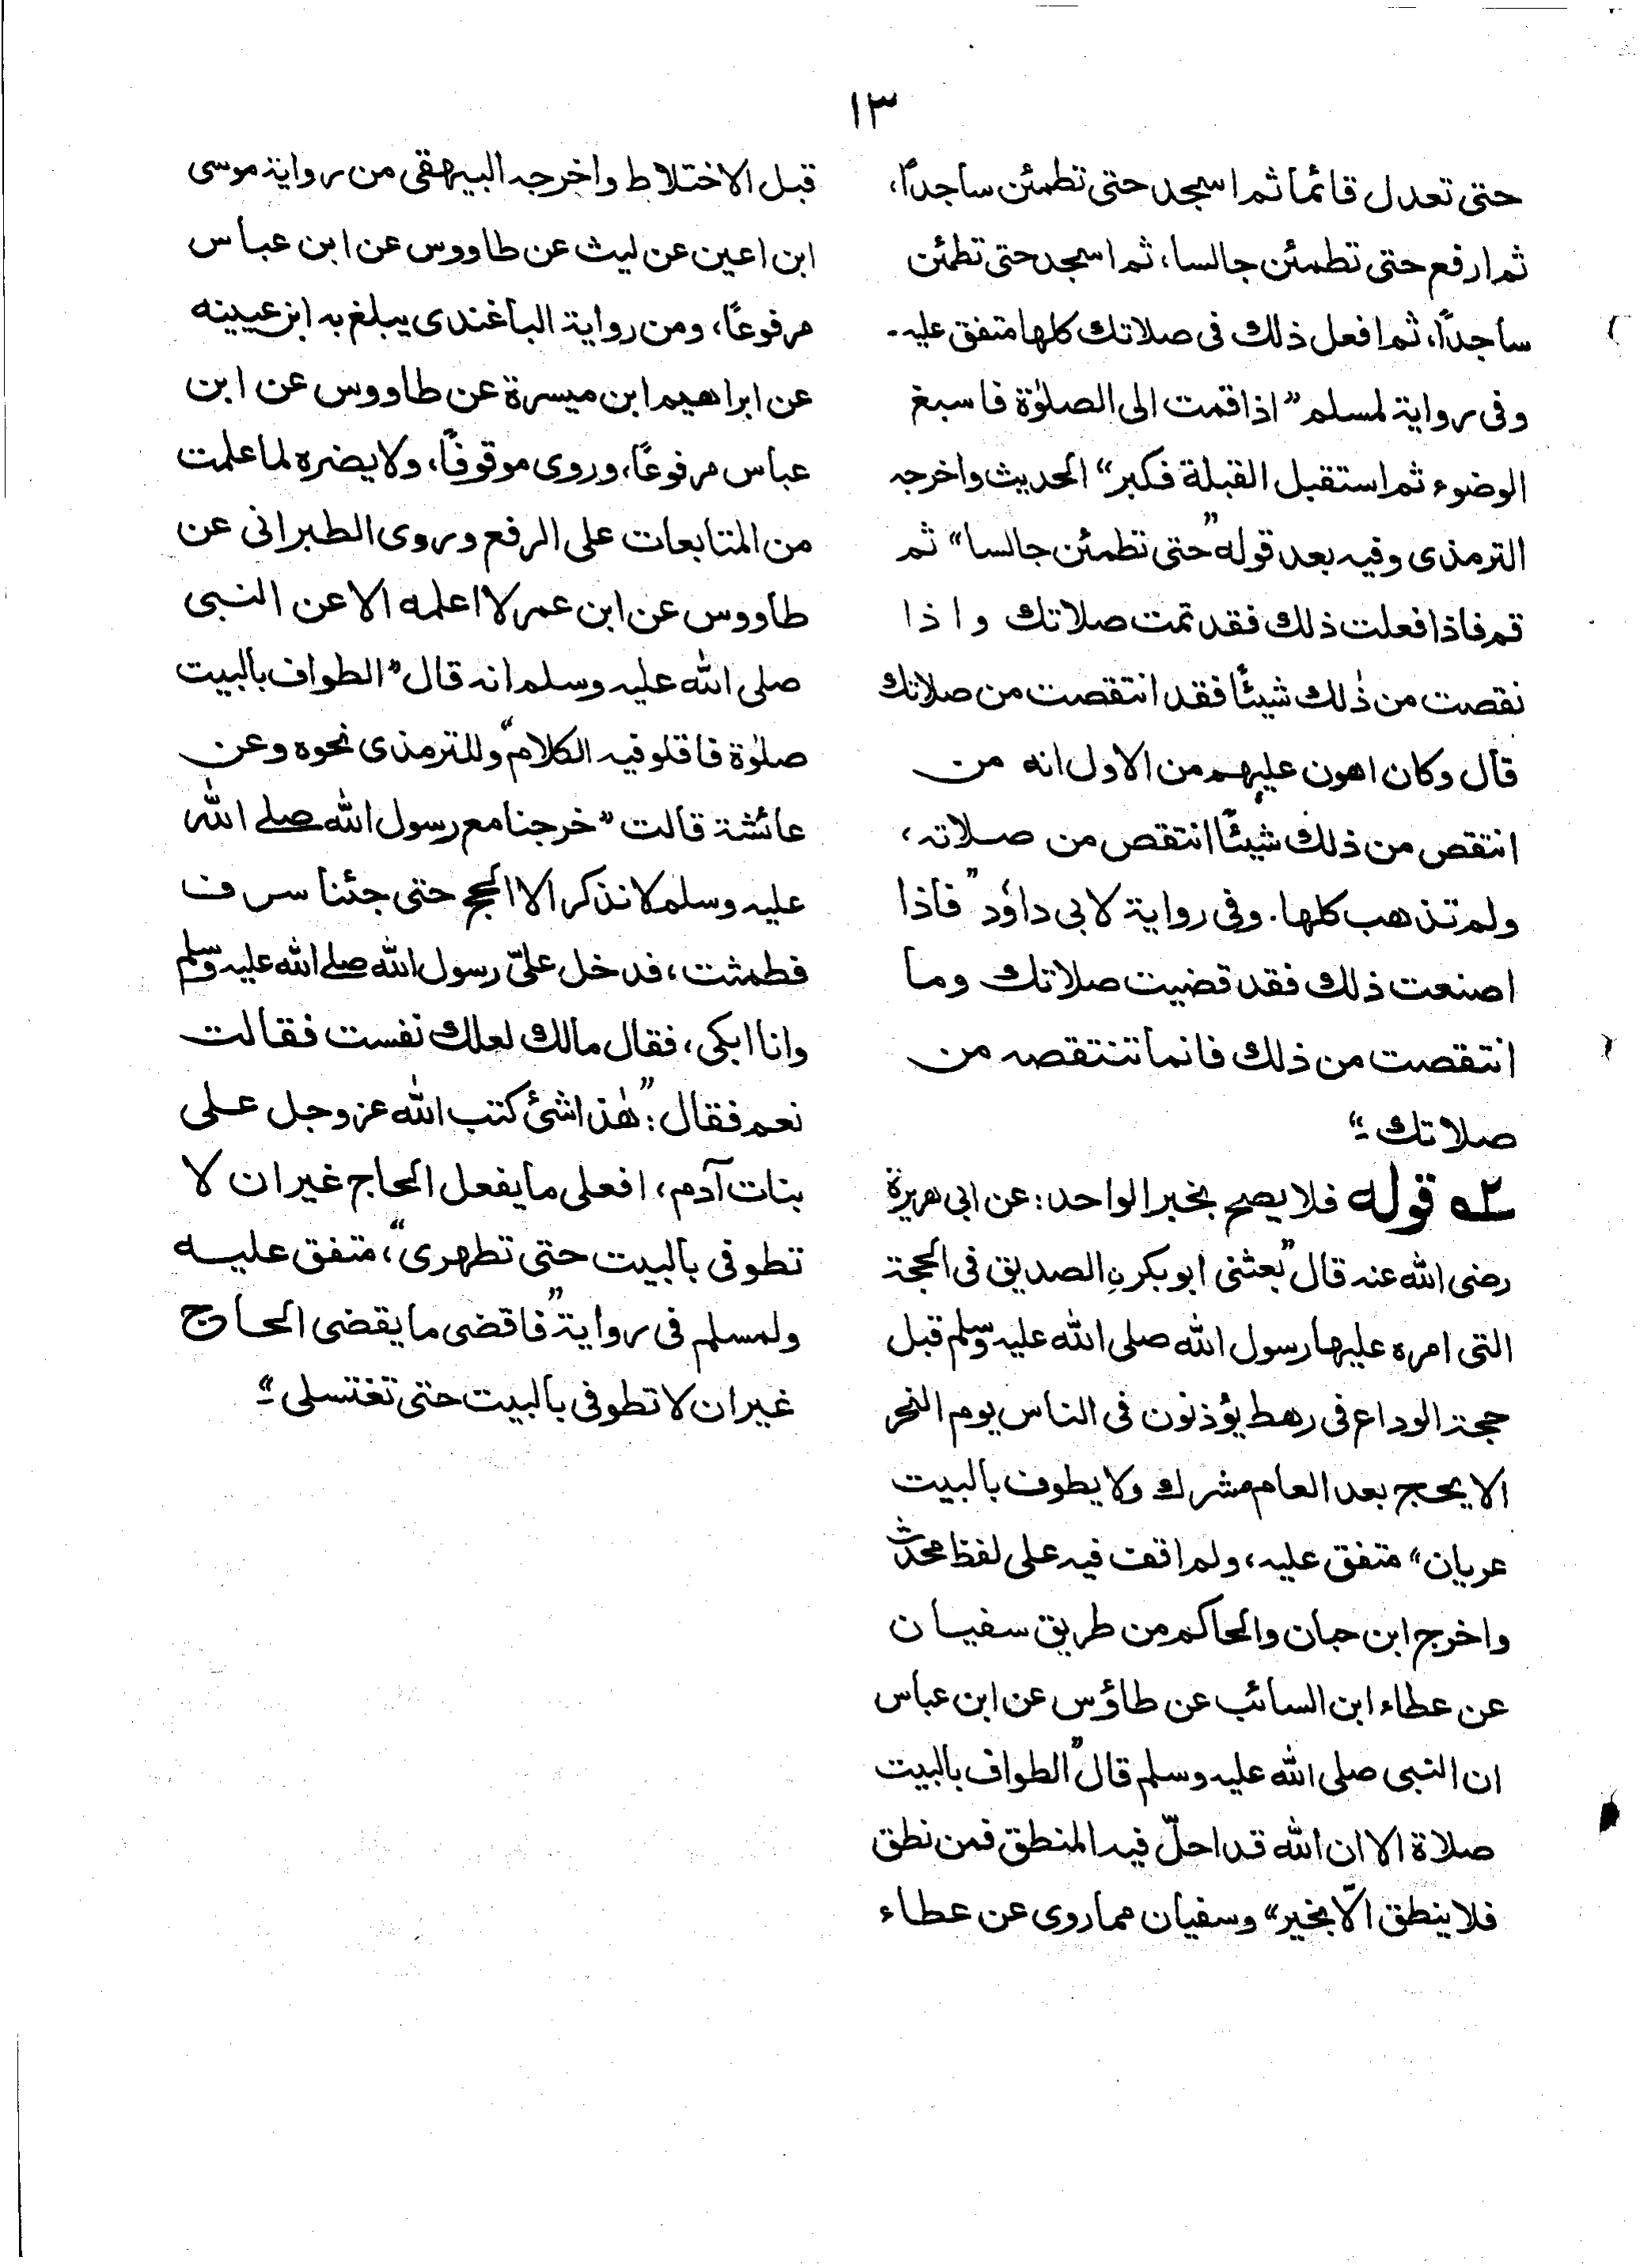 ١٣
حتى تعدل قائما ثم اسجد حتى تطمئن ساجداً،
ثم ارفع حتى تطمئن جالسا، ثم اسجد حتى تطمئن
ساجداً، ثم افعل ذلك فى صلاتك كلها متفق عليه۔
وفى رواية لمسلم "اذا قمت الى الصلوٰة فاسبغ
الوضوء ثم استقبل القبلة فكبر" الحديث واخرجه
الترمذى وفيه بعد قوله "حتى تطمئن جالسا" ثم
قم فاذا فعلت ذلك فقد تمت صلاتك واذا
نقصت من ذٰلك شيئًا فقد انتقصت من صلاتك
قال وكان اهون عليهم من الاول انه من
انتقص من ذلك شيئًا انتقص من صلاته،
ولم تذهب كلها. وفى رواية لابى داوٗد "فاذا
اصنعت ذلك فقد قضيت صلاتك وما
انتقصت من ذلك فانما تنتقصه من
صلاتك۔"
٢ه قوله فلا يصح بخبر الواحد: عن ابى هريرة
رضى الله عنه قال "بعثنى ابوبكرنِ الصديق فى الحجة
التى امره عليها رسول الله صلى الله عليه وسلم قبل
حجة الوداع فى رهط يؤذنون فى الناس يوم النحر
الا يحج بعد العام مشرك ولا يطوف بالبيت
عريان" متفق عليه، ولم اقف فيه على لفظ محدث
واخرج ابن حبان والحاكم من طريق سفيان
عن عطاء ابن السائب عن طاؤس عن ابن عباس
ان النبى صلى الله عليه وسلم قال "الطواف بالبيت
صلاة الا ان الله قد احلّ فيه المنطق فمن نطق
فلا ينطق الّا بخير" وسفيان مما روى عن عطاء
قبل الاختلاط واخرجه البيهقى من رواية موسى
ابن اعين عن ليث عن طاووس عن ابن عباس
مرفوعًا، ومن رواية الباغندى يبلغ به ابن عيينه
عن ابراهيم ابن ميسرة عن طاووس عن ابن
عباس مرفوعًا، وروى موقوفًا، ولا يضره لما علمت
من المتابعات على الرفع وروى الطبرانى عن
طاووس عن ابن عمر لا اعلمه الا عن النبى
صلى الله عليه وسلم انه قال "الطواف بالبيت
صلوٰة فاقلو فيه الكلام" وللترمذى نحوه وعن
عائشة قالت "خرجنا مع رسول الله صلے الله
عليه وسلم لا نذكر الا الحج حتى جئنا سرف
فطمثت، فدخل علىّ رسول الله صلے الله عليه وسلم
وانا ابكى، فقال مالك لعلك نفست فقالت
نعم فقال: "هٰذا شئ كتب الله عز وجل على
بنات آدم، افعلى ما يفعل الحاج غير ان لا
تطوفى بالبيت حتى تطهرى"، متفق عليه
ولمسلم فى رواية "فاقضى ما يقضى الحاج
غير ان لا تطوفى بالبيت حتى تغتسلى۔"